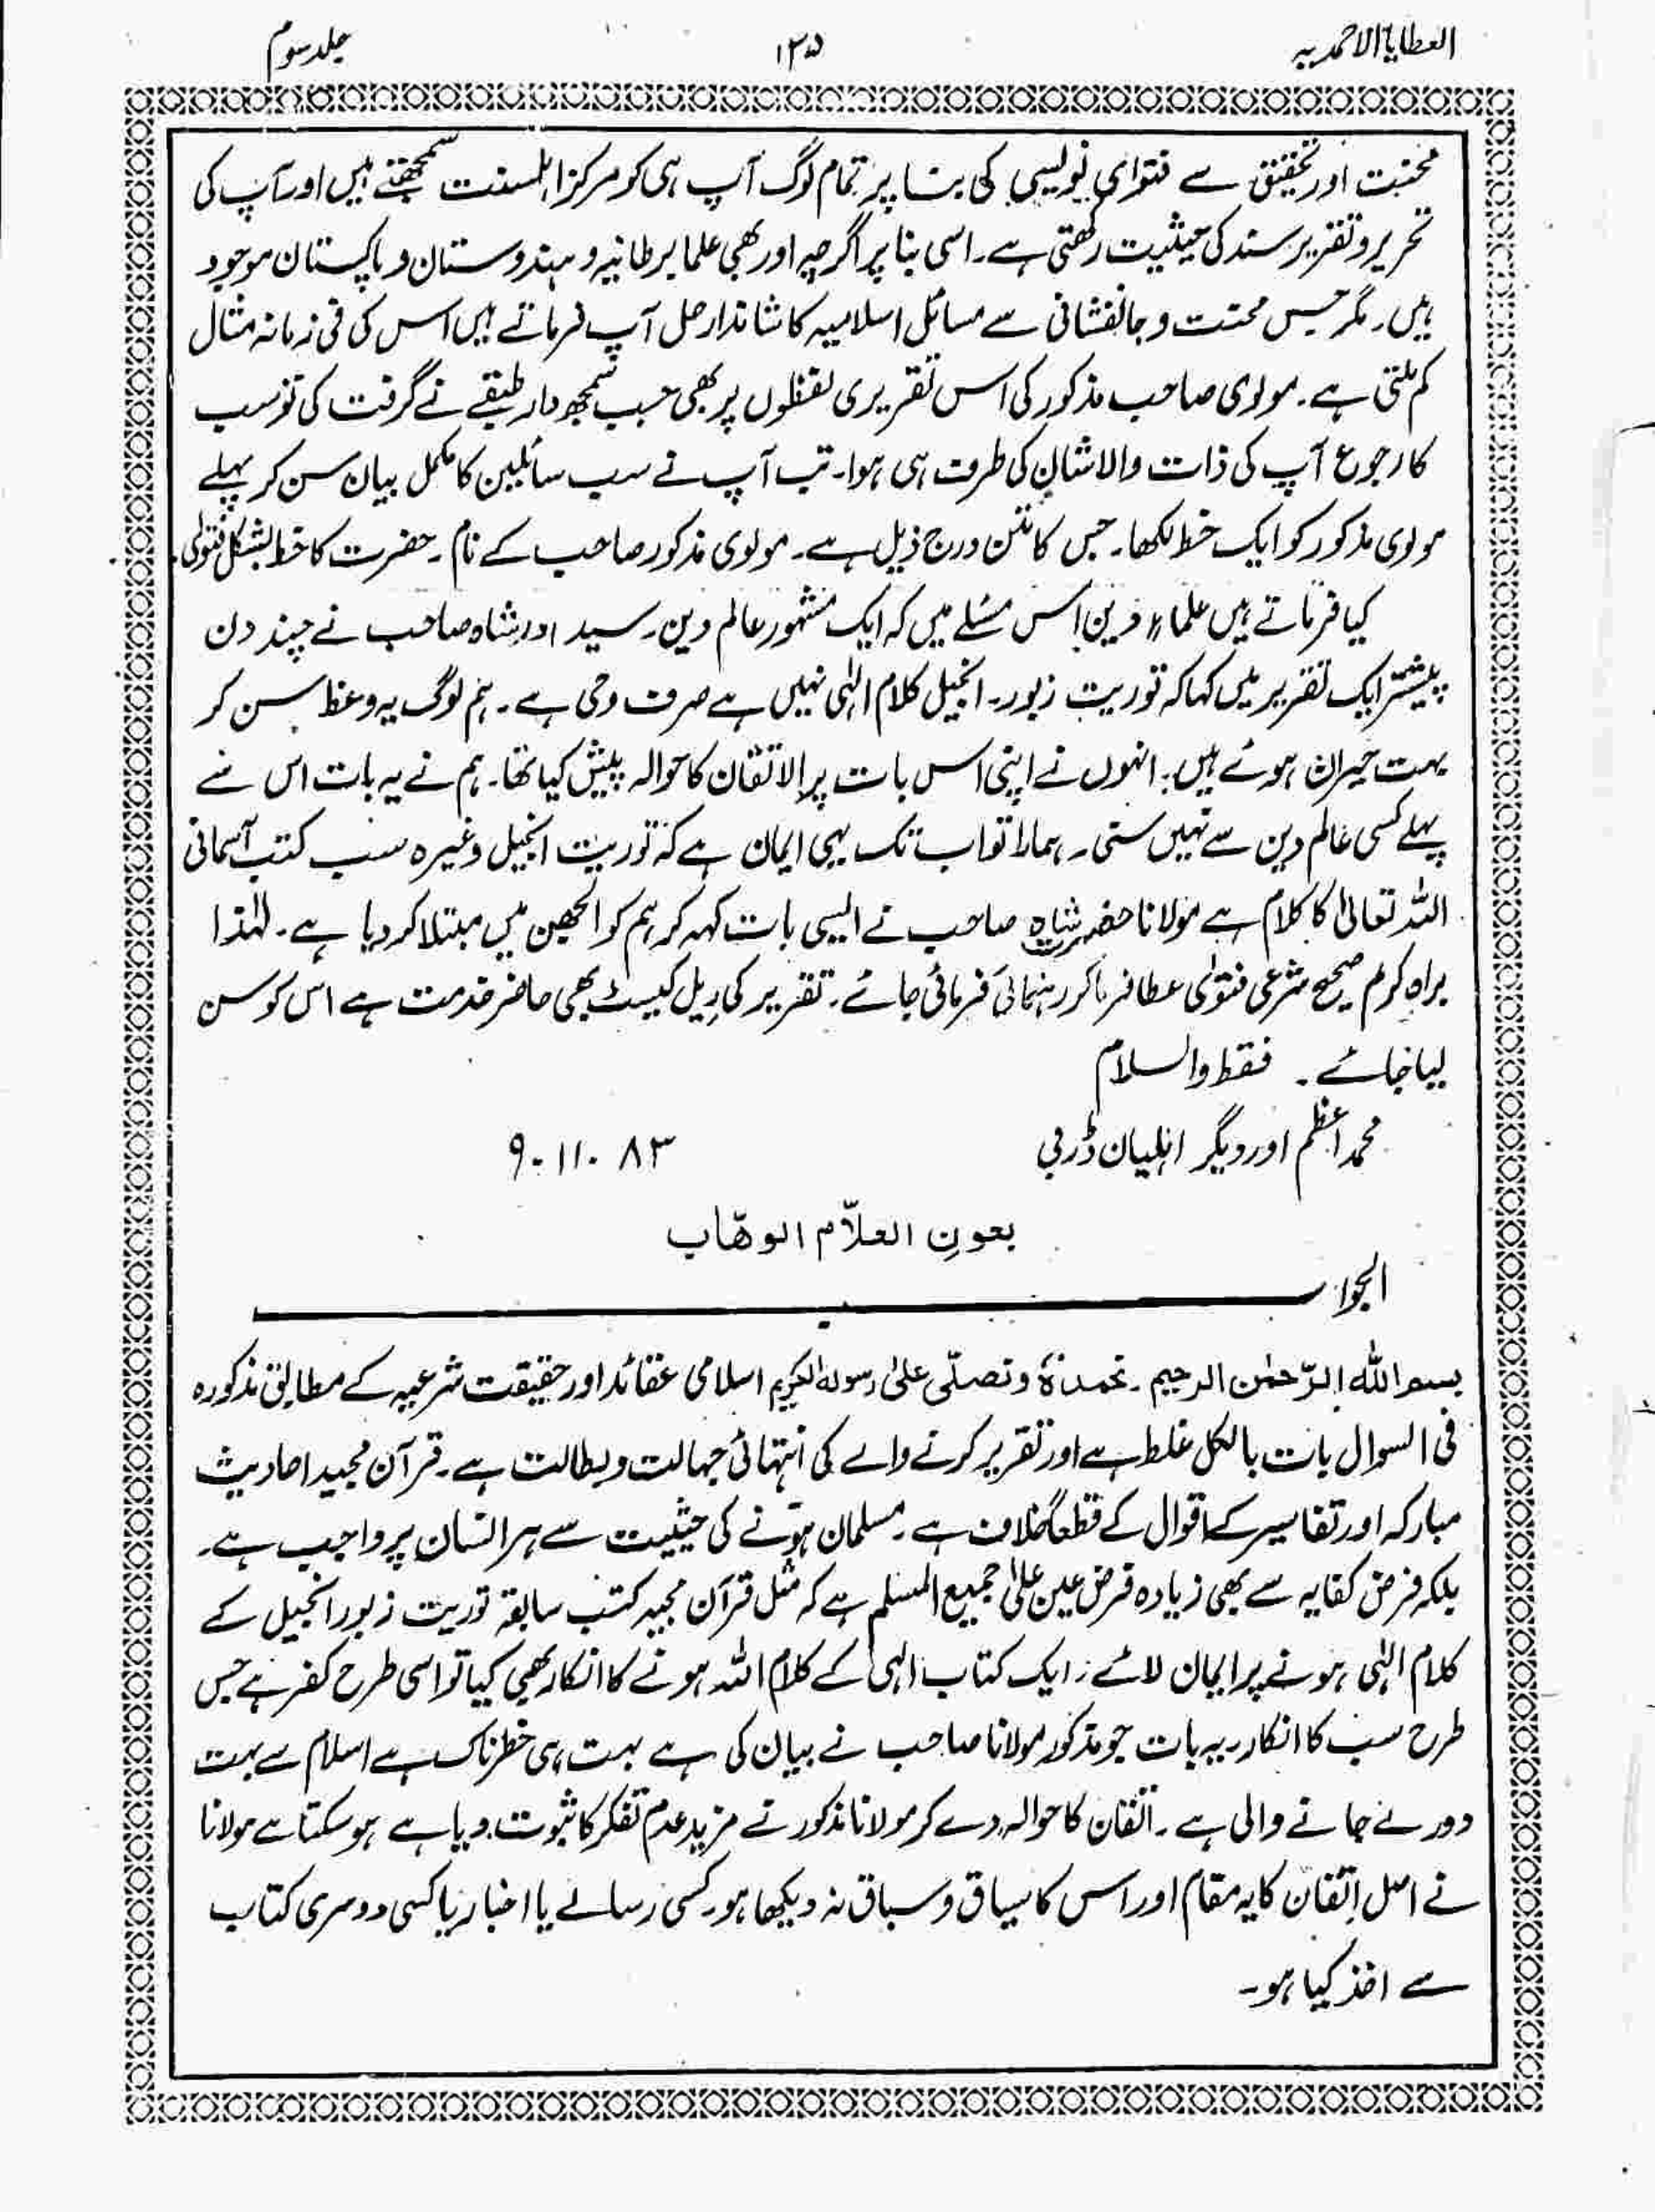 العطایا الاحمدیہ
۱۲۵
جلد سوم
محنت اور تحقیق سے فتوای نویسی کی بنا پر تمام لوگ آپ ہی کو مرکز اہلسنت سمجھتے ہیں اور آپ کی
تحریر و تقریر سند کی حیثیت رکھتی ہے۔ اسی بنا پر اگرچہ اور بھی علما برطانیہ و ہندوستان و پاکستان موجود
ہیں۔ مگر جس محنت و جانفشانی سے مسائل اسلامیہ کا شاندار حل آپ فرماتے ہیں اس کی فی زمانہ مثال
کم ملتی ہے۔ مولوی صاحب مذکور کی اس تقریری لفظوں پر بھی جب سمجھ دار طبقے نے گرفت کی تو سب
کا رجوع آپ کی ذات والا شان کی طرف ہی ہوا۔ تب آپ نے سب سائلین کا مکمل بیان سن کر پہلے
مولوی مذکور کو ایک خط لکھا۔ جس کا متن درج ذیل ہے۔ مولوی مذکور صاحب کے نام۔ حضرت کا خط بشکل فتوٰی۔
کیا فرماتے ہیں علماء دین اس مسئلے میں کہ ایک مشہور عالم دین۔ سید اور شاہ صاحب نے چند دن
پیشتر ایک تقریر میں کہا کہ توریت زبور۔ انجیل کلام الٰہی نہیں ہے صرف وحی ہے۔ ہم لوگ یہ وعظ سن کر
بہت حیران ہوئے ہیں۔ انہوں نے اپنی اس بات پر الاتقان کا حوالہ پیش کیا تھا۔ ہم نے یہ بات اس سے
پہلے کسی عالم دین سے نہیں سنی۔ ہمارا تو اب تک یہی ایمان ہے کہ توریت انجیل وغیرہ سب کتب آسمانی
اللہ تعالیٰ کا کلام ہے مولانا حضرت شاہ صاحب نے ایسی بات کہہ کر ہم کو الجھن میں مبتلا کر دیا ہے۔ لہٰذا
براہ کرم صحیح شرعی فتوٰی عطا فرما کر رہنمائی فرمائی جائے۔ تقریر کی ریل کیسٹ بھی حاضر خدمت ہے اس کو سن
لیا جائے۔ فقط والسلام
محمد اعظم اور دیگر اہلیان ڈربی
۹۔۱۱۔۸۳
بعونِ العلاّم الوھّاب
الجواب
بسم اللہ الرّحمٰن الرحیم۔ نحمدہٗ و نصلّی علیٰ رسولہ الکریم اسلامی عقائد اور حقیقت شرعیہ کے مطابق مذکورہ
فی السوال بات بالکل غلط ہے اور تقریر کرنے والے کی انتہائی جہالت و بطالت ہے۔ قرآن مجید احادیث
مبارکہ اور تفاسیر کے اقوال کے قطعاً خلاف ہے۔ مسلمان ہونے کی حیثیت سے ہر انسان پر واجب ہے۔
بلکہ فرض کفایہ سے بھی زیادہ فرض عین علیٰ جمیع المسلم ہے کہ مثل قرآن مجید کتب سابقہ توریت زبور انجیل کے
کلام الٰہی ہونے پر ایمان لائے۔ ایک کتاب الٰہی کے کلام اللہ ہونے کا انکار بھی کیا تو اسی طرح کفر ہے جس
طرح سب کا انکار۔ یہ بات جو مذکور مولانا صاحب نے بیان کی ہے بہت ہی خطرناک ہے اسلام سے بہت
دور لے جانے والی ہے۔ اتقان کا حوالہ دے کر مولانا مذکور نے مزید عدم تفکر کا ثبوت دیا ہے ہو سکتا ہے مولانا
نے اصل اِتقان کا یہ مقام اور اس کا سیاق و سباق نہ دیکھا ہو۔ کسی رسالے یا اخبار یا کسی دوسری کتاب
سے اخذ کیا ہو۔